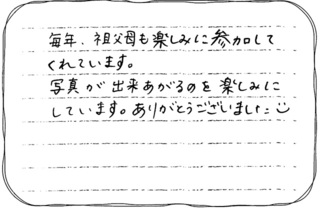 毎年、祖父母も楽しみに参加して
くれています。
写真が出来あがるのを楽しみに
しています。ありがとうございました